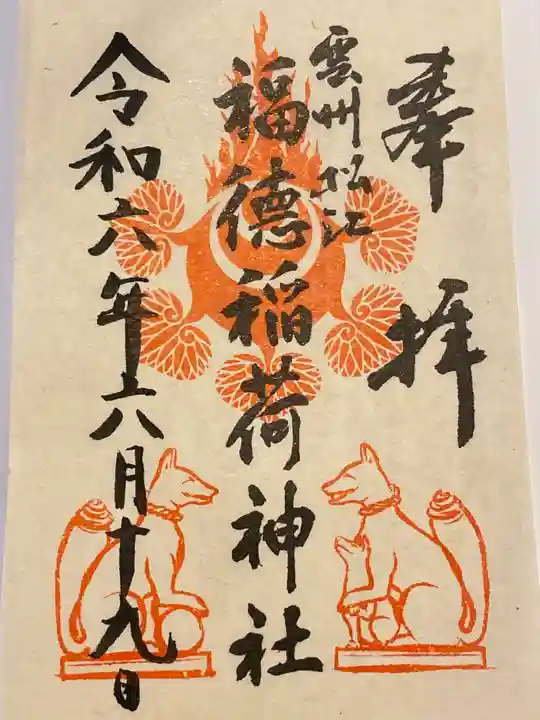 奉拝
雲州松江
福德稲荷神社
令和六年六月十九日